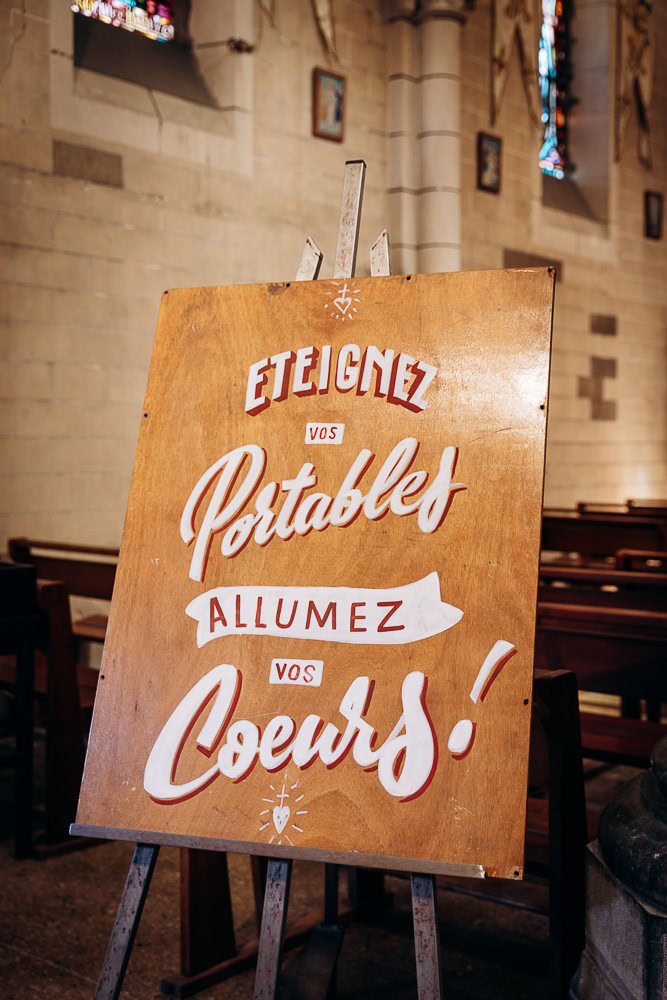 ETEIGNEZ
VOS
Portables
ALLUMEZ
VOS
Coeurs!